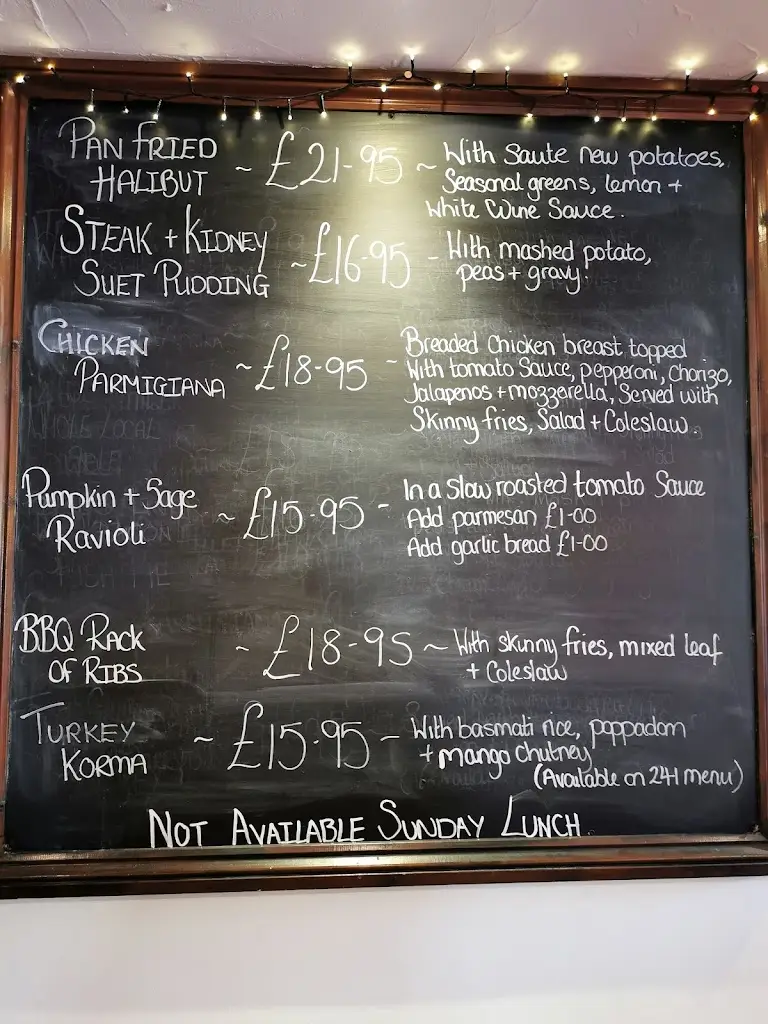 PAN FRIED HALIBUT ~ £21-95 ~ With Saute new potatoes,
Seasonal greens, lemon +
White Wine Sauce.
STEAK + KIDNEY SUET PUDDING ~ £16-95 - With mashed potato,
peas + gravy.
CHICKEN PARMIGIANA ~ £18-95 - Breaded Chicken breast topped
With tomato Sauce, pepperoni, Chorizo,
Jalapenos + mozzarella, Served with
Skinny fries, Salad + Coleslaw.
Pumpkin + Sage Ravioli ~ £15-95 - In a Slow roasted tomato Sauce
Add parmesan £1-00
Add garlic bread £1-00
BBQ RACK OF RIBS ~ £18-95 ~ With skinny fries, mixed leaf
+ Coleslaw
TURKEY KORMA ~ £15-95 - With basmati rice, poppadom
+ mango Chutney
(Available on 241 menu)
NOT AVAILABLE SUNDAY LUNCH.